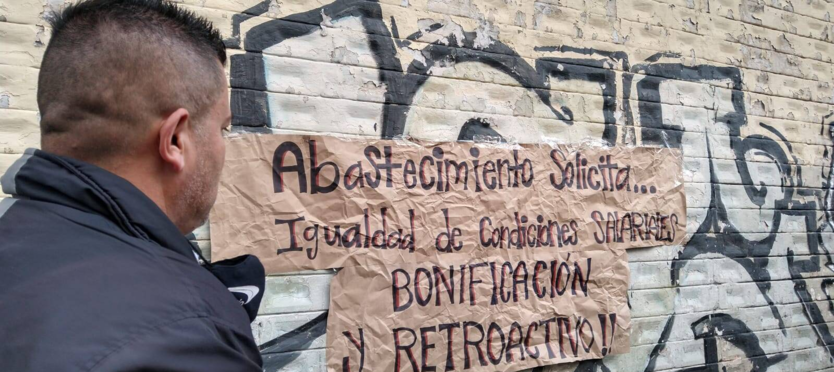 Abastecimiento Solicita...
Igualdad de Condiciones SALARIALES
BONIFICACIÓN
Y RETROACTIVO!!